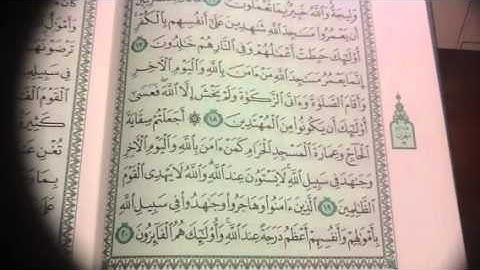 وَلِيجَةً وَاللَّهُ خَبِيرٌ بِمَا تَعْمَلُونَ
أَن يَعْمُرُوا مَسَاجِدَ اللَّهِ شَاهِدِينَ عَلَىٰ أَنفُسِهِم بِالْكُفْرِ
أُولَٰئِكَ حَبِطَتْ أَعْمَالُهُمْ وَفِي النَّارِ هُمْ خَالِدُونَ ١٧
إِنَّمَا يَعْمُرُ مَسَاجِدَ اللَّهِ مَنْ آمَنَ بِاللَّهِ وَالْيَوْمِ الْآخِرِ
وَأَقَامَ الصَّلَاةَ وَآتَى الزَّكَاةَ وَلَمْ يَخْشَ إِلَّا اللَّهَ فَعَسَىٰ
أُولَٰئِكَ أَن يَكُونُوا مِنَ الْمُهْتَدِينَ ١٨ ۞ أَجَعَلْتُمْ سِقَايَةَ
الْحَاجِّ وَعِمَارَةَ الْمَسْجِدِ الْحَرَامِ كَمَنْ آمَنَ بِاللَّهِ وَالْيَوْمِ الْآخِرِ
وَجَاهَدَ فِي سَبِيلِ اللَّهِ لَا يَسْتَوُونَ عِندَ اللَّهِ وَاللَّهُ لَا يَهْدِي الْقَوْمَ
الظَّالِمِينَ ١٩ الَّذِينَ آمَنُوا وَهَاجَرُوا وَجَاهَدُوا فِي سَبِيلِ اللَّهِ
بِأَمْوَالِهِمْ وَأَنفُسِهِمْ أَعْظَمُ دَرَجَةً عِندَ اللَّهِ وَأُولَٰئِكَ هُمُ الْفَائِزُونَ ٢٠
تَرْضَوْنَهَا
فِي سَبِيلِهِ
الْقَوْمَ الْفَ
كَثِيرَةٍ
تُغْنِ عَن
بِمَا